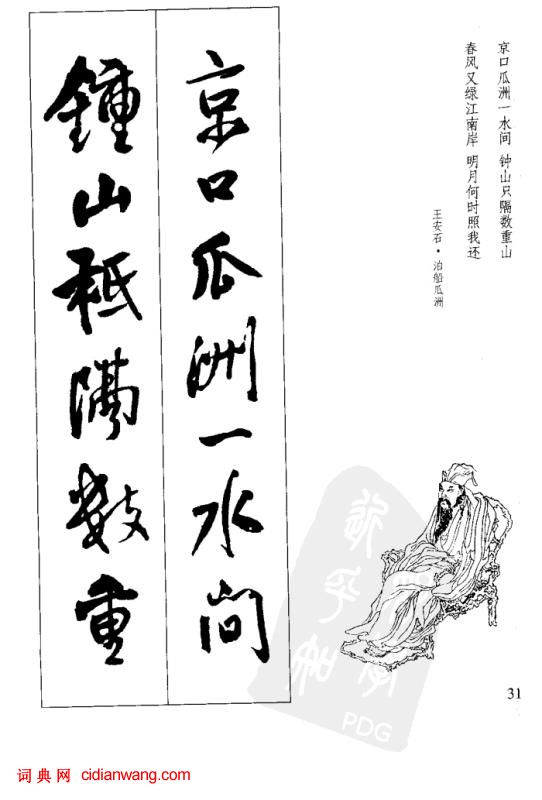 京口瓜洲一水间 钟山只隔数重山
春风又绿江南岸 明月何时照我还
王安石·泊船瓜洲
京口瓜洲一水间
鍾山秖隔数重
PDG
31
词典网 cidianwang.com